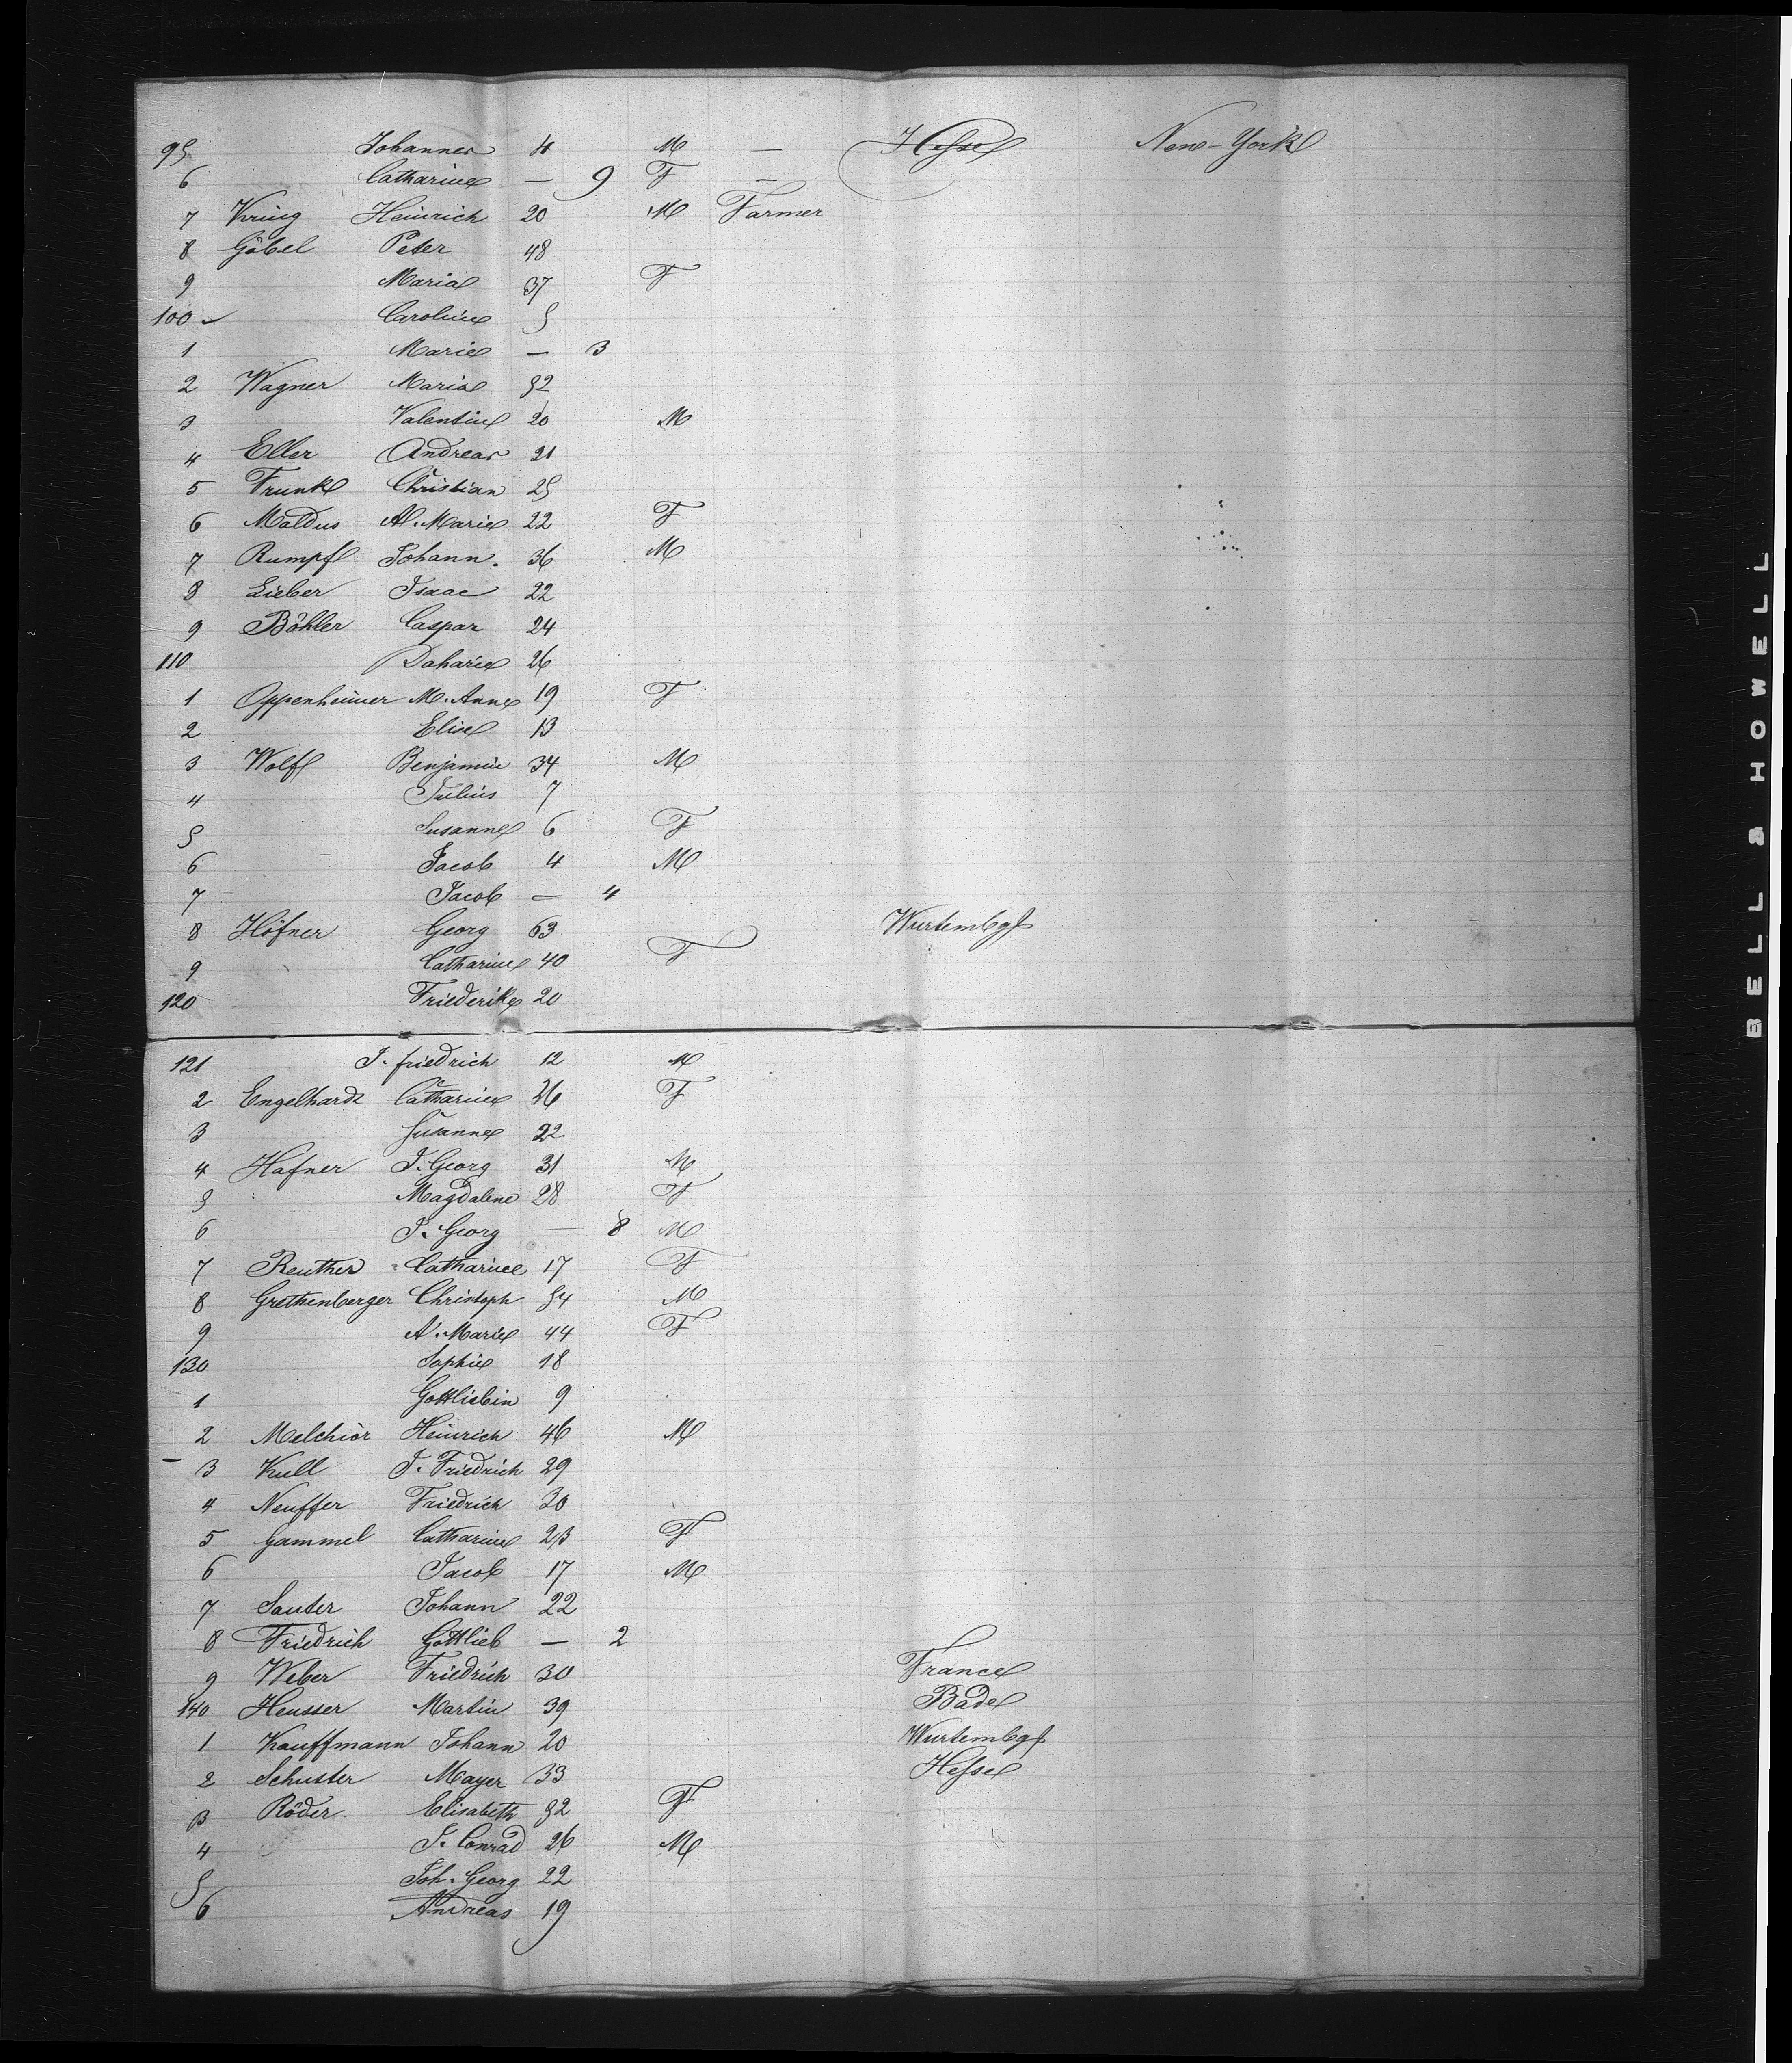 95 Johannes 4 M — Hesse New-York
6 Catharine — 9 F —
7 Kring Heinrich 20 M Farmer
8 Göbel Peter 48
9 Maria 37 F
100 Caroline 5
1 Marie — 3
2 Wagner Maria 52
3 Valentine 20 M
4 Eller Andreas 21
5 Trunk Christian 25
6 Maldus A. Marie 22 F
7 Rumpf Johann. 36 M
8 Lieber Isaac 22
9 Böhler Caspar 24
110 26
1 Oppenheimer M. Anne 19 F
2 Elise 13
3 Wolf Benjamin 34 M
4 Julius 7
5 Susanne 6 F
6 Jacob 4 M
7 Jacob — 4
8 Höfner Georg 63 Wurtembg
9 Catharine 40 F
120 Friederike 20
121 J. friedrich 12 M
2 Engelhardt Catharine 26 F
3 Susanne 22
4 Hafner J. Georg 31 M
5 Magdalene 28 F
6 J. Georg — 8 M
7 Reuther Catharine 17 F
8 Grethenberger Christoph 54 M
9 A. Marie 44 F
130 Sophie 18
1 Gottliebin 9
2 Melchior Heinrich 46 M
3 Kull J. Friedrich 29
4 Neuffer Friedrich 30
5 Gammel Catharine 23 F
6 Jacob 17 M
7 Sauter Johann 22
8 Friedrich Gottlieb — 2
9 Weber Friedrich 30 France
140 Heusser Martin 39 Bade
1 Kauffmann Johann 20 Wurtembg
2 Schuster Mayer 33 Hesse
3 Röder Elisabeth 52 F
4 J. Conrad 26 M
5 Joh. Georg 22
6 Andreas 19
BELL & HOWELL